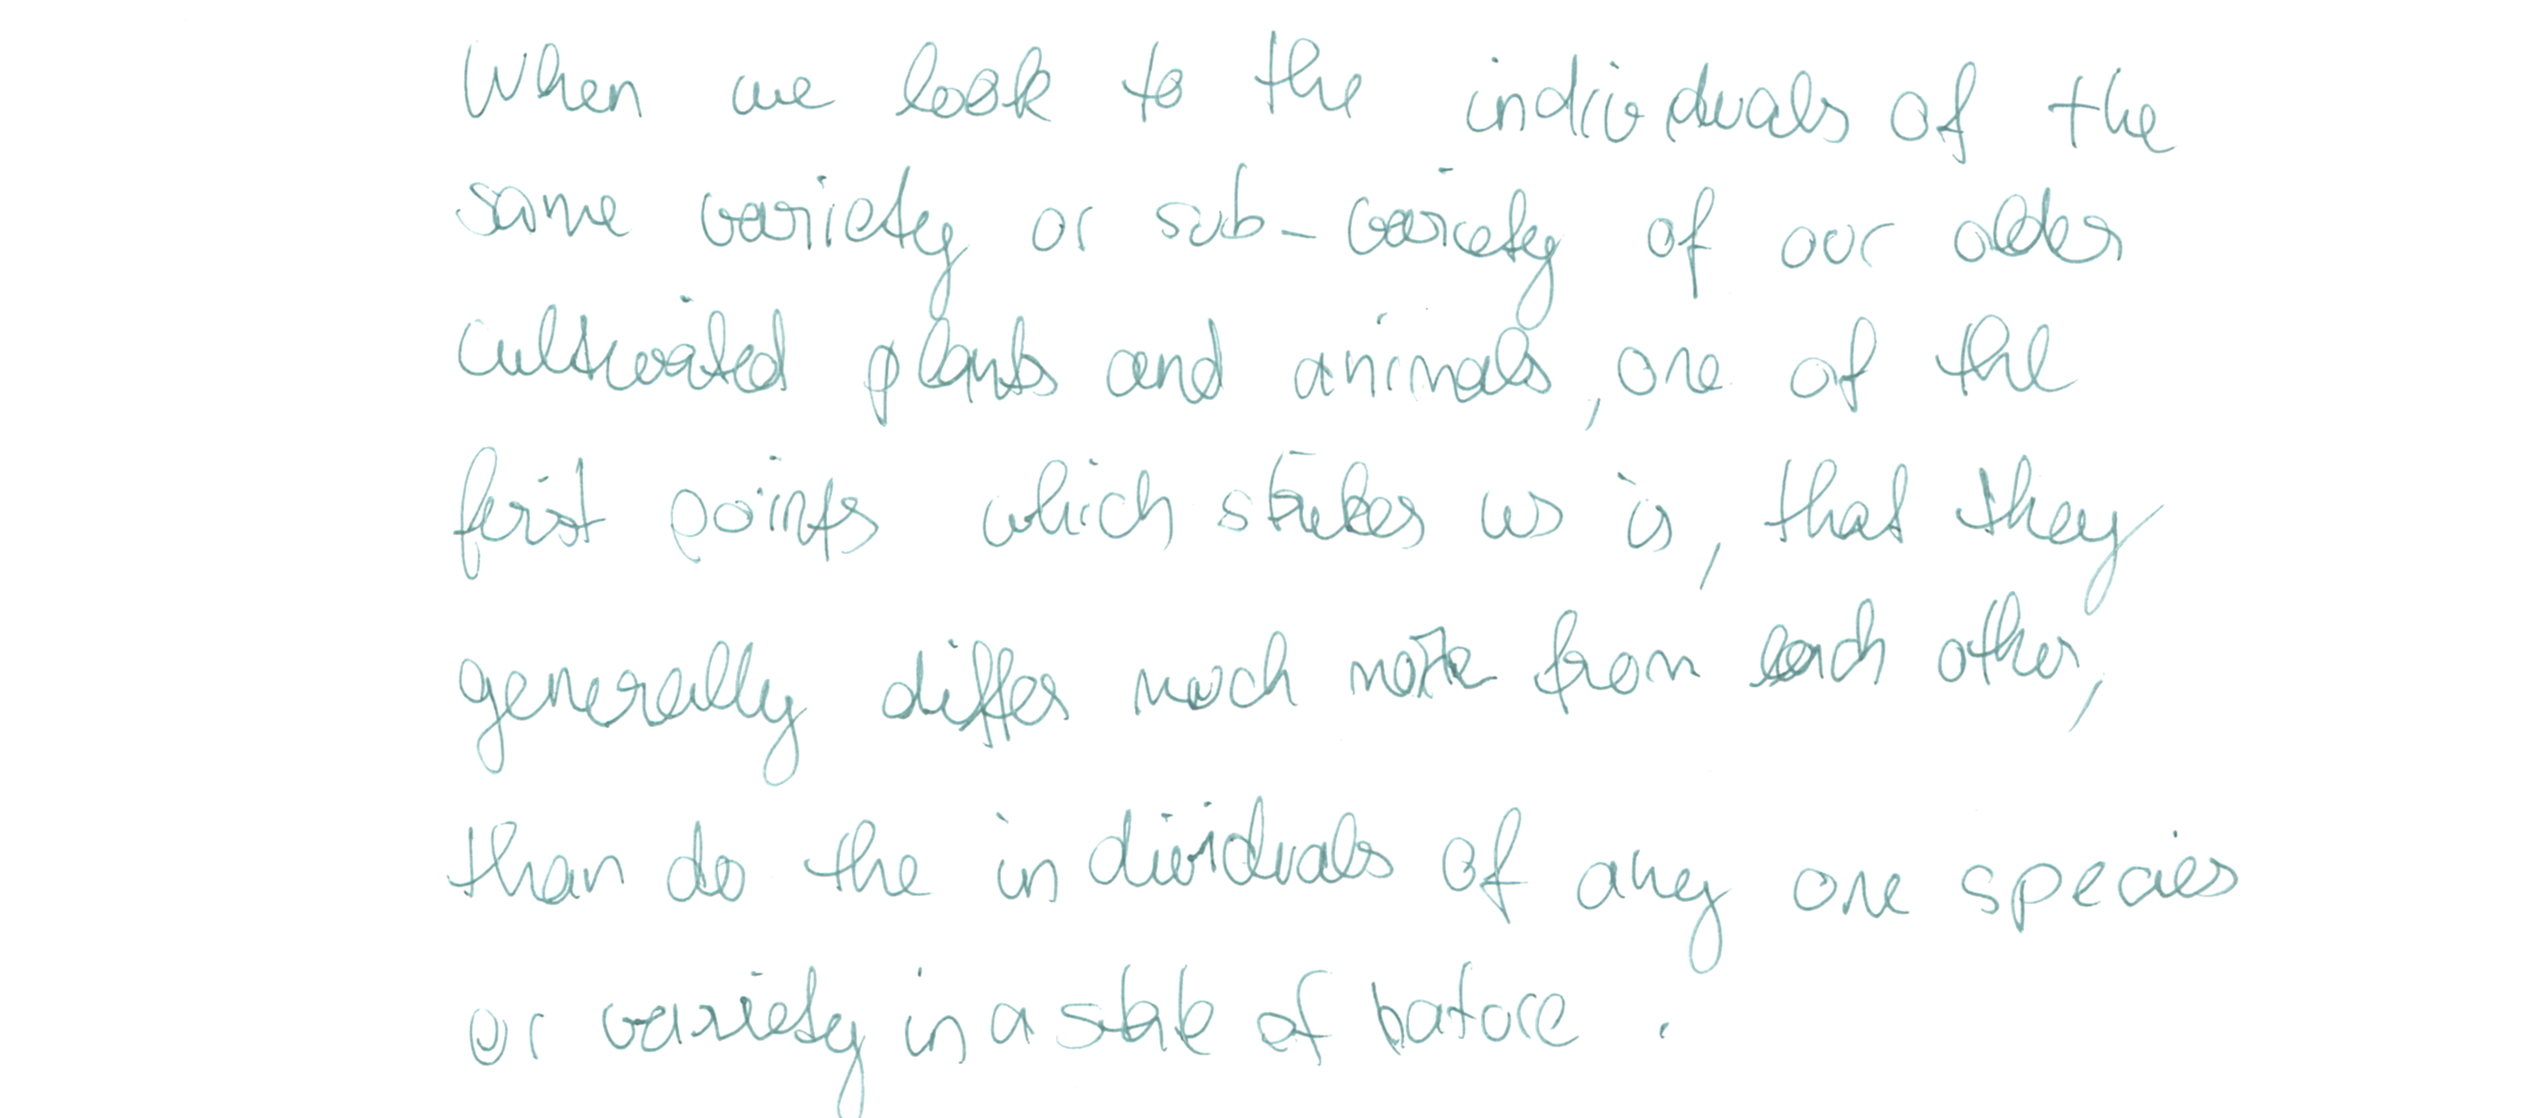 When we look to the individuals of the
same variety or sub-variety of our older
cultivated plants and animals, one of the
first points which strikes us is, that they
generally differ much more from each other,
than do the individuals of any one species
or variety in a state of nature.